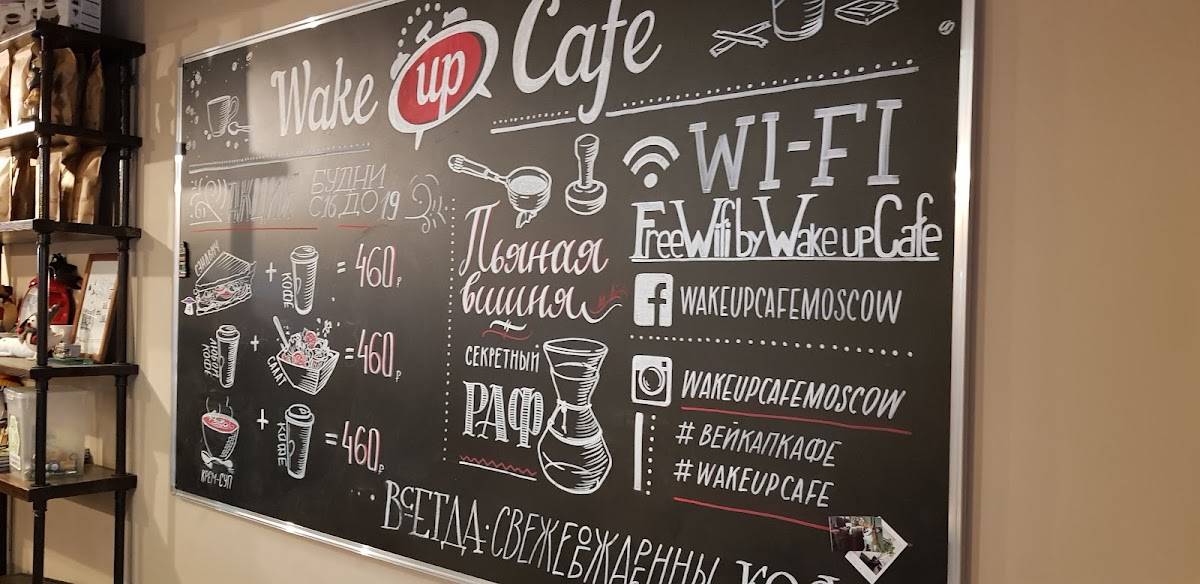 Wake up Cafe
АКЦИЯ
БУДНИ
С 16 ДО 19
СЭНДВИЧ + КОФЕ = 460 ₽
ЛЮБОЙ КОФЕ + САЛАТ = 460 ₽
КРЕМ-СУП + КОФЕ = 460 ₽
Пьяная
вишня
СЕКРЕТНЫЙ
РАФ
WI-FI
Free Wifi by Wake up Cafe
f WAKEUPCAFEMOSCOW
WAKEUPCAFEMOSCOW
# ВЕЙКАПКАФЕ
# WAKEUPCAFE
ВСЕГДА · СВЕЖЕОБЖАРЕННЫ